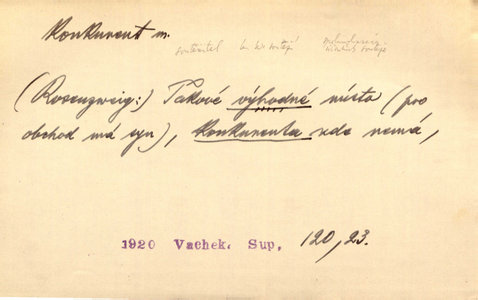 Konkurent m.
soutěžitel
(Rosenzweig:) Takové výhodné místo (pro
obchod má syn), konkurenta zde nemá,
1920 Vachek. Sup, 120,23.